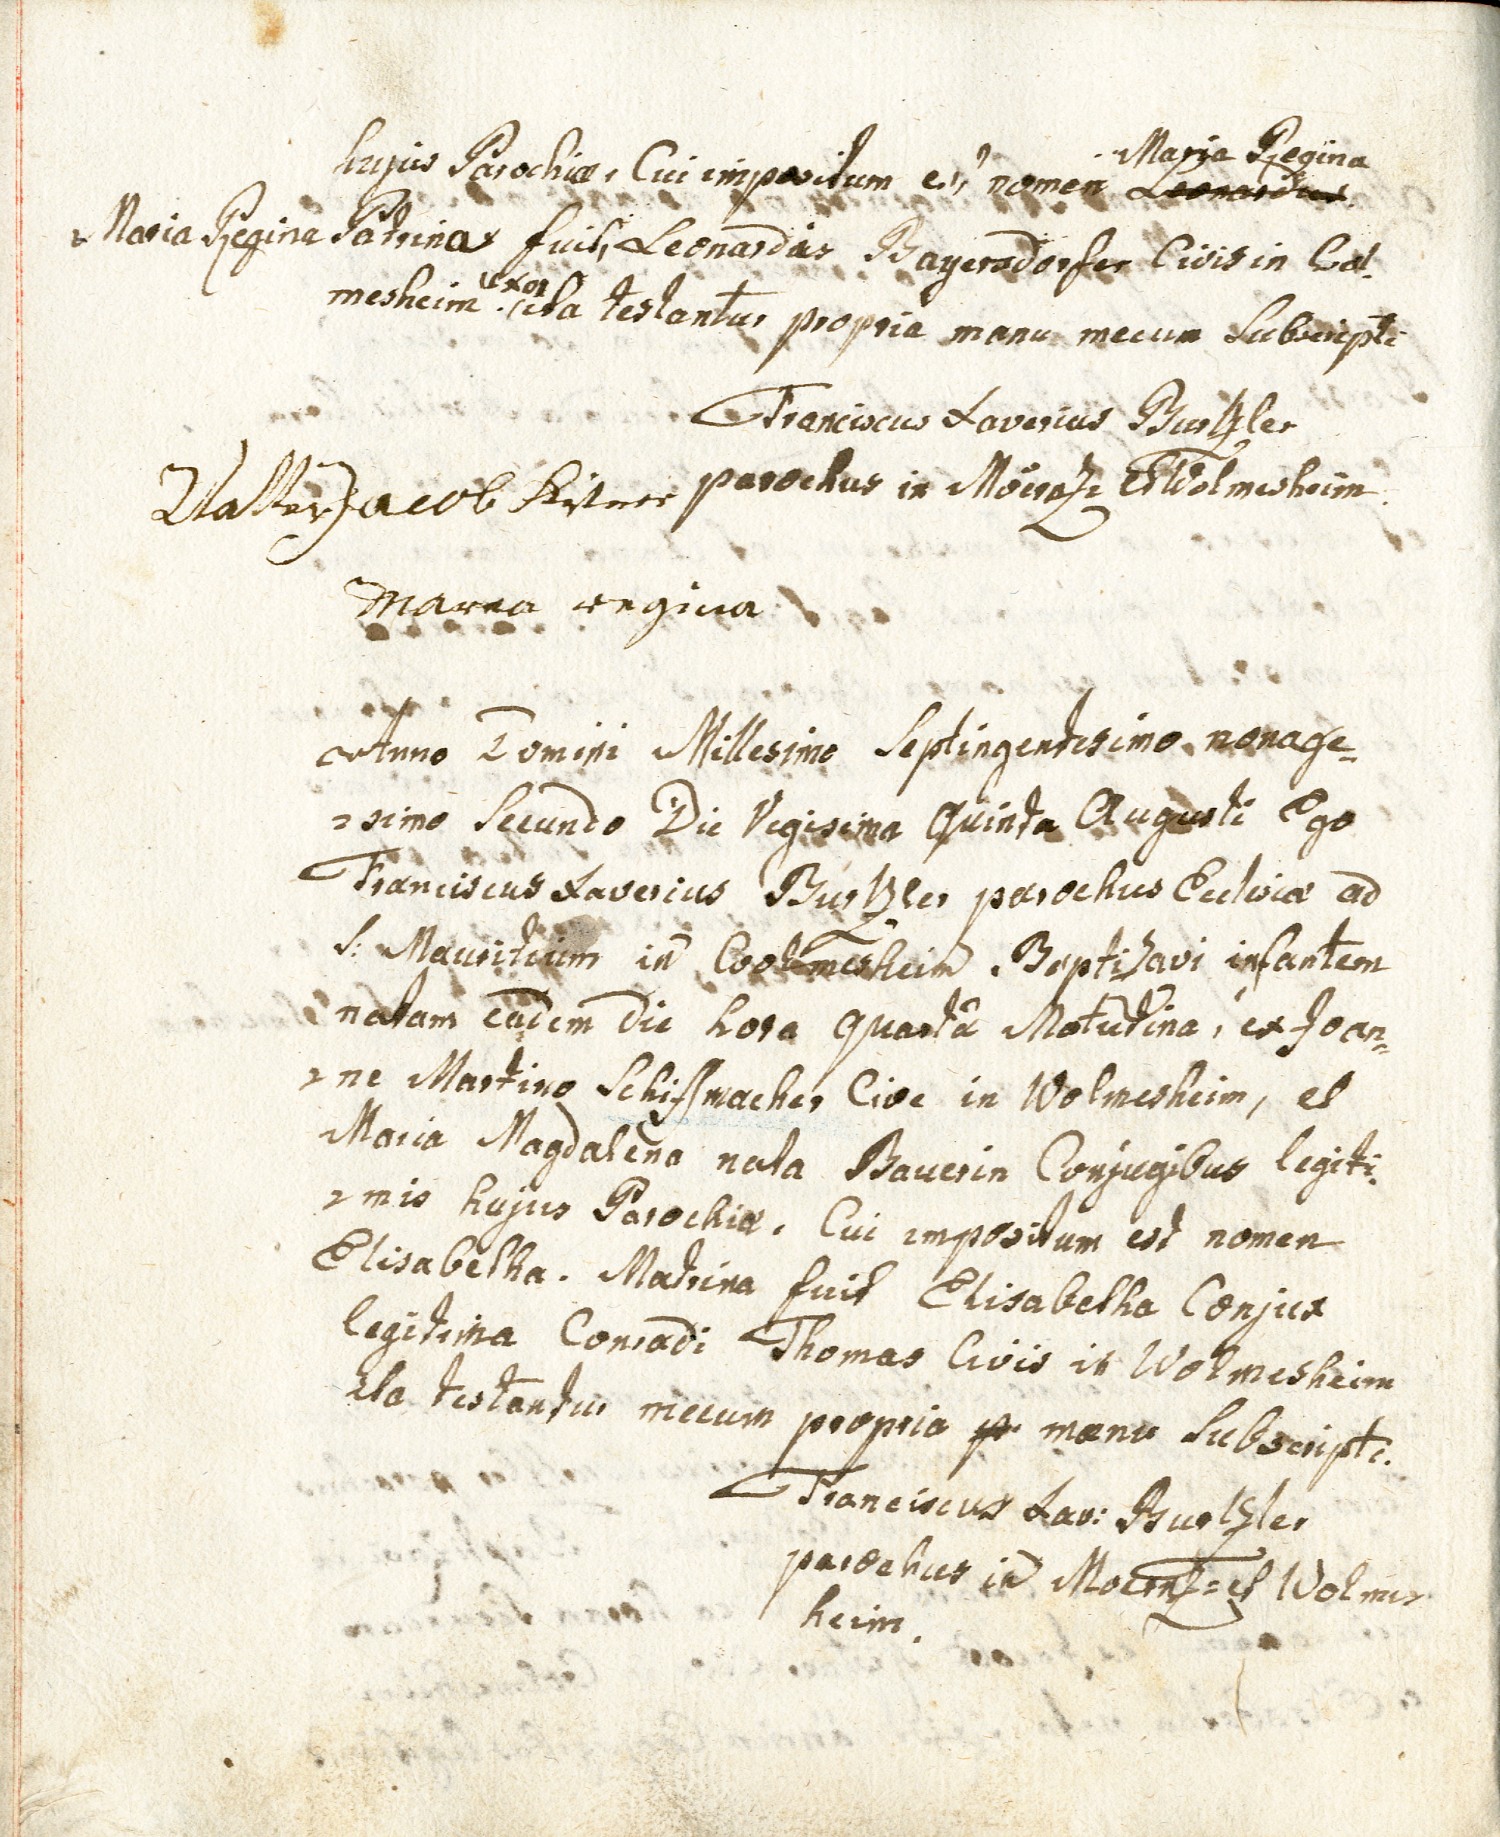 hujus Parochiæ, Cui impositum est nomen Maria Regina Leonardus.
Maria Regina Patrina fuit, Leonardus Bayersdorfer Civis in Wol-
mesheim uxor. ita testantur propria manu mecum Subscripti
Franciscus Xaverius Burtzler
parochus in Mörtzh et Wolmesheim.
Walter Jacob
Marea regina
Anno Domini Millesimo Septingentesimo nonage-
simo Secundo Die Vigesima quinta Augusti Ego
Franciscus Xaverius Burtzler parochus Ecclesiæ ad
S: Mauritium in Woolmesheim Baptizavi infantem
natam eadem die hora quarta Matutina, ex Joan-
ne Martino Schiffmacher Cive in Wolmesheim, et
Maria Magdalena nata Bauerin Conjugibus legiti-
mis hujus Parochiæ, Cui impositum est nomen
Elisabetha. Matrina fuit Elisabetha Conjux
legitima Conradi Thomas Civis in Wolmesheim
Ita testantur mecum propria pr manu Subscripti.
Franciscus Xav: Burtzler
parochus in et Wolmes
heim.